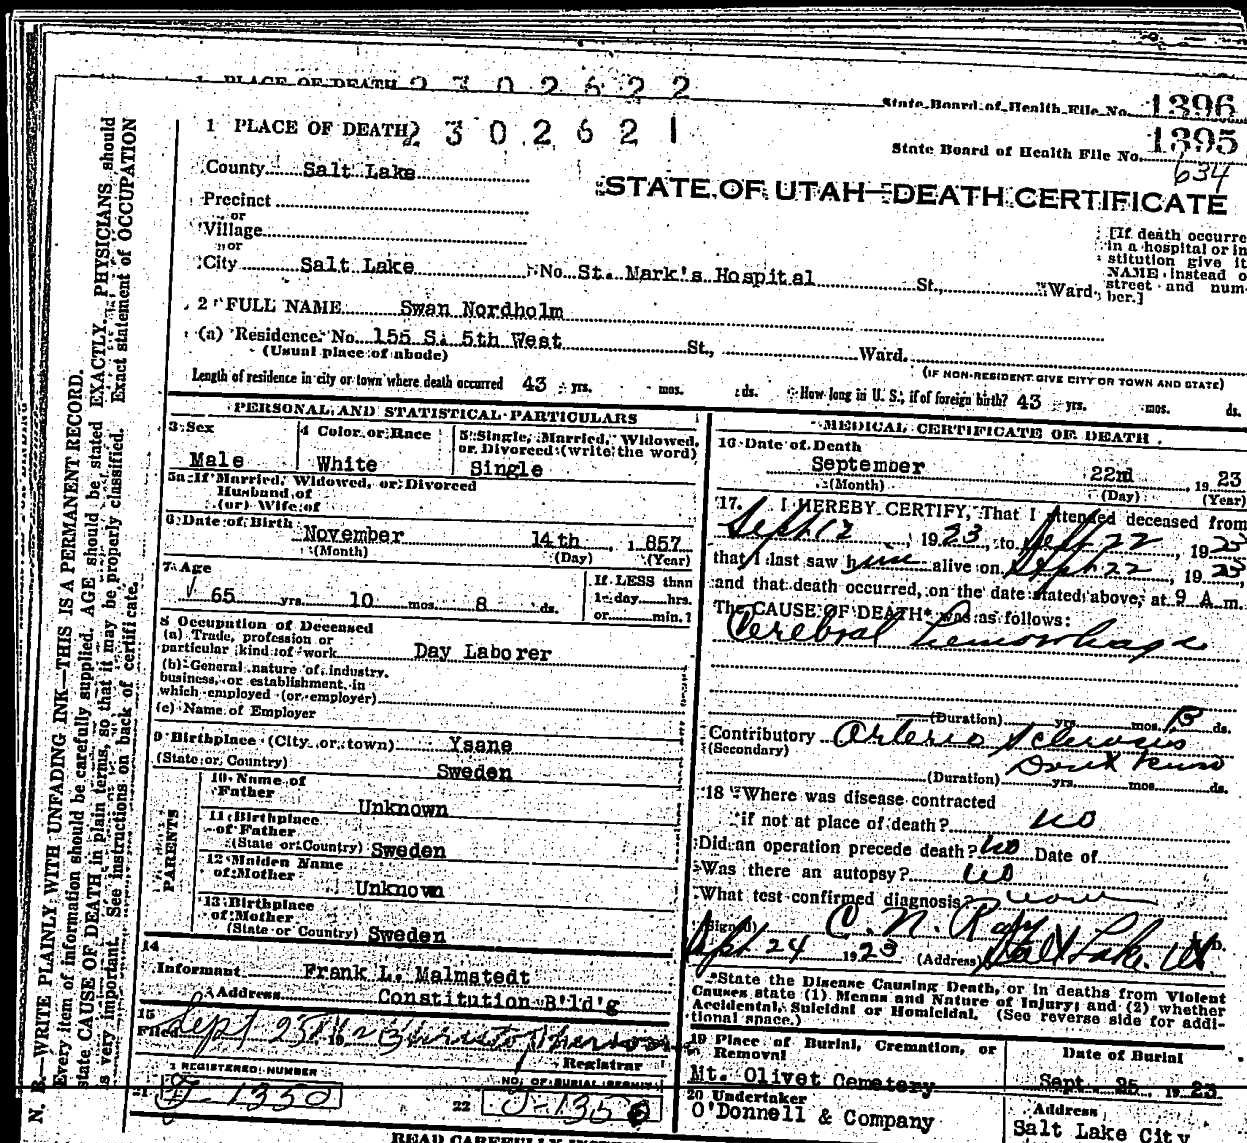 1 PLACE OF DEATH 2302622
State Board of Health File No. 1396
1 PLACE OF DEATH 2302621
State Board of Health File No. 1395
634
County Salt Lake
STATE OF UTAH—DEATH CERTIFICATE
Precinct
or
Village
or
City Salt Lake No St. Mark's Hospital St., Ward
[If death occurre
in a hospital or in
stitution give it
NAME instead o
street and num-
ber.]
2 FULL NAME Swan Nordholm
(a) Residence No. 155 S. 5th West St., Ward.
(Usual place of abode)
(IF NON-RESIDENT GIVE CITY OR TOWN AND STATE)
Length of residence in city or town where death occurred 43 yrs. mos. ds. How long in U. S., if of foreign birth? 43 yrs. mos. ds.
PERSONAL AND STATISTICAL PARTICULARS
3 Sex
Male
4 Color or Race
White
5 Single, Married, Widowed,
or Divorced (write the word)
Single
5a If Married, Widowed, or Divorced
Husband of
(or) Wife of
6 Date of Birth
November 14th, 1857
(Month) (Day) (Year)
7 Age
65 yrs. 10 mos. 8 ds.
If LESS than
1 day hrs.
or min.?
8 Occupation of Deceased
(a) Trade, profession or
particular kind of work Day Laborer
(b) General nature of industry,
business, or establishment in
which employed (or employer)
(c) Name of Employer
9 Birthplace (City or town) Ysane
(State or Country) Sweden
PARENTS
10 Name of
Father Unknown
11 Birthplace
of Father
(State or Country) Sweden
12 Maiden Name
of Mother Unknown
13 Birthplace
of Mother
(State or Country) Sweden
14
Informant Frank L. Malmstedt
Address Constitution B'ld'g
15
Filed Sept 25 19
Registrar
REGISTERED NUMBER
21 J-1350
NO. OF BURIAL PERMIT
22 J-1350
MEDICAL CERTIFICATE OF DEATH
16 Date of Death
September 22nd 1923
(Month) (Day) (Year)
17. I HEREBY CERTIFY, That I attended deceased from
Sept 12, 1923, to Sept 22, 1923
that I last saw him alive on Sept 22, 1923,
and that death occurred, on the date stated above, at 9 A m.
The CAUSE OF DEATH* was as follows:
Cerebral hemorrhage
(Duration) yrs. mos. ds.
Contributory Arterio Sclerosis
(Secondary) Dont know
(Duration) yrs. mos. ds.
18 Where was disease contracted
if not at place of death? no
Did an operation precede death? no Date of
Was there an autopsy? no
What test confirmed diagnosis? none
(Signed) C. N. Ray M.D.
Sept 24 1923 (Address) Salt Lake, Ut
*State the Disease Causing Death, or in deaths from Violent
Causes state (1) Means and Nature of Injury; and (2) whether
Accidental, Suicidal or Homicidal. (See reverse side for addi-
tional space.)
19 Place of Burial, Cremation, or
Removal
Mt. Olivet Cemetery
Date of Burial
Sept. 25, 1923
20 Undertaker
O'Donnell & Company
Address
Salt Lake City
N. B.—WRITE PLAINLY, WITH UNFADING INK—THIS IS A PERMANENT RECORD.
Every item of information should be carefully supplied. AGE should be stated EXACTLY. PHYSICIANS should
state CAUSE OF DEATH in plain terms, so that it may be properly classified. Exact statement of OCCUPATION
is very important. See instructions on back of certificate.